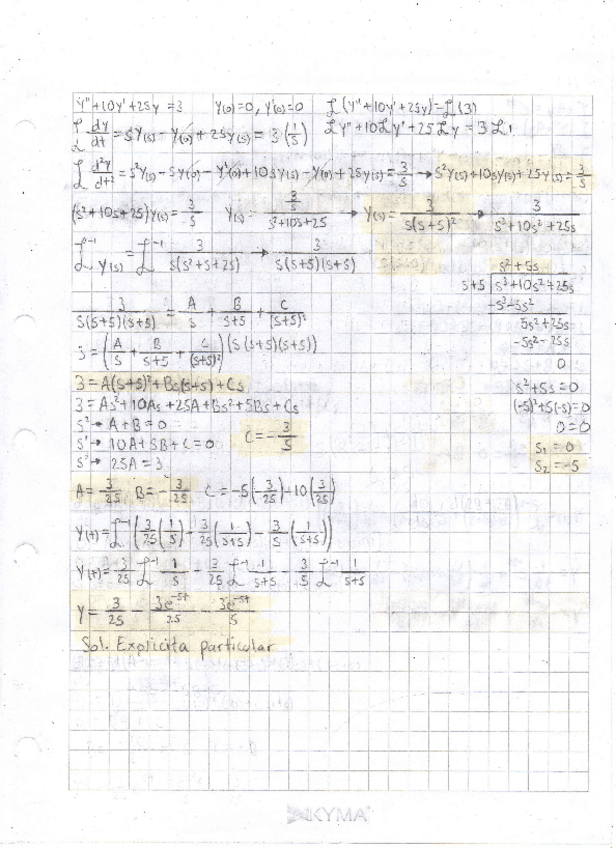 y'' + 10y' + 25y = 3    y(0) = 0, y'(0) = 0    ℒ(y'' + 10y' + 25y) = ℒ(3)
ℒ dy/dt = sY(s) - y(0) + 25y(s) = 3(1/s)    ℒy'' + 10ℒy' + 25ℒy = 3ℒ1
ℒ d²y/dt² = s²Y(s) - sy(0) - y'(0) + 10sy(s) - y(0) + 25y(s) = 3/s → s²Y(s) + 10sy(s) + 25y(s) = 3/s
(s² + 10s + 25)y(s) = 3/s    y(s) = (3/s)/(s² + 10s + 25) → y(s) = 3/(s(s+5)²) → 3/(s³ + 10s² + 25s)
ℒ⁻¹ y(s) = ℒ⁻¹ 3/(s(s² + s + 25)) → 3/(s(s+5)(s+5))
s² + 5s
s+5 | s³ + 10s² + 25s
-s³ - 5s²
5s² + 25s
-5s² - 25s
0
s² + 5s = 0
(-5)² + 5(-5) = 0
0 = 0
s₁ = 0
s₂ = -5
3/(s(s+5)(s+5)) = A/s + B/(s+5) + C/(s+5)²
3 = (A/s + B/(s+5) + C/(s+5)²)(s(s+5)(s+5))
3 = A(s+5)² + Bs(s+5) + Cs
3 = As² + 10As + 25A + Bs² + 5Bs + Cs
s² → A + B = 0
s' → 10A + 5B + C = 0    C = -3/5
s° → 25A = 3
A = 3/25    B = -3/25    C = -5(-3/25) - 10(3/25)
y(t) = ℒ⁻¹(3/25(1/s) - 3/25(1/(s+5)) - 3/5(1/(s+5)))
y(t) = 3/25 ℒ⁻¹ 1/s - 3/25 ℒ⁻¹ 1/(s+5) - 3/5 ℒ⁻¹ 1/(s+5)
y = 3/25 - 3e^-5t/25 - 3e^-5t/5
Sol. Explicita particular
KYMA